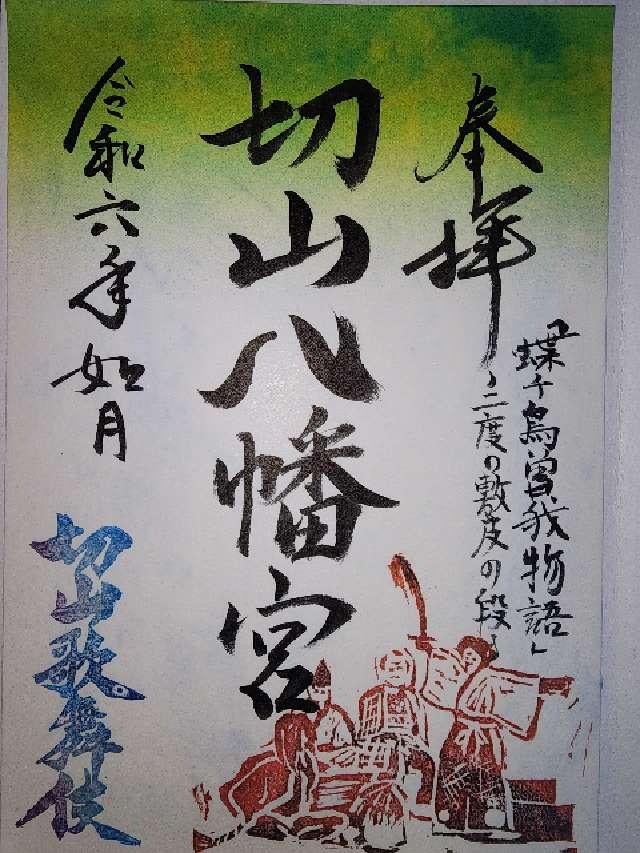 奉拝
「蝶千鳥曽我物語」
〜二度の敷皮の段〜
切山八幡宮
令和六年如月
切山歌舞伎